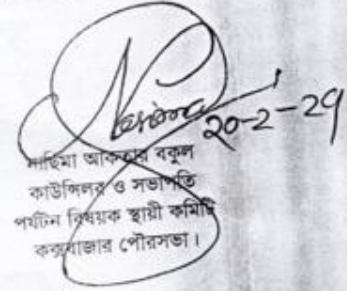 Nasima
২০-২-২৭
নাছিমা আকতার বকুল
কাউন্সিলর ও সভাপতি
পর্যটন বিষয়ক স্থায়ী কমিটি
কক্সবাজার পৌরসভা।